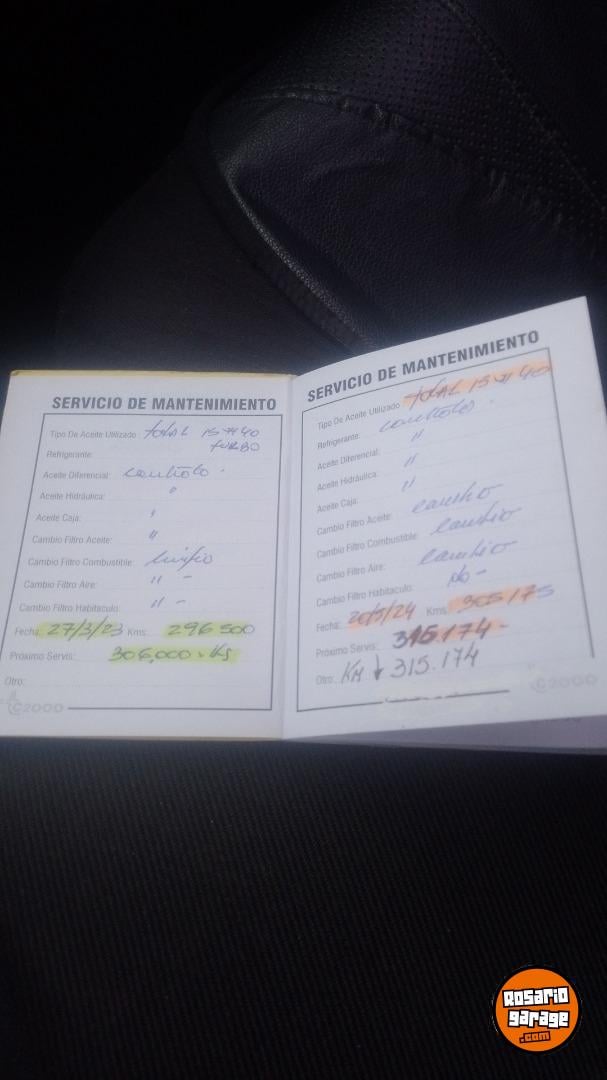 SERVICIO DE MANTENIMIENTO
Tipo De Aceite Utilizado: total 15W40
Refrigerante: turbo
Aceite Diferencial: controlo
Aceite Hidráulica: "
Aceite Caja: "
Cambio Filtro Aceite: "
Cambio Filtro Combustible: limpio
Cambio Filtro Aire: " -
Cambio Filtro Habitaculo: " -
Fecha: 27/3/23 Kms: 296500
Próximo Servis: 306,000 Ks
Otro:
C2000
SERVICIO DE MANTENIMIENTO
Tipo De Aceite Utilizado: total 15W40
Refrigerante: controlo
Aceite Diferencial: "
Aceite Hidráulica: "
Aceite Caja: "
Cambio Filtro Aceite: cambio
Cambio Filtro Combustible: cambio
Cambio Filtro Aire: cambio
Cambio Filtro Habitaculo: No -
Fecha: 20/3/24 Kms: 305175
Próximo Servis: 315.174 -
Otro: KM ↓ 315.174
C2000
Rosario
garage
.com